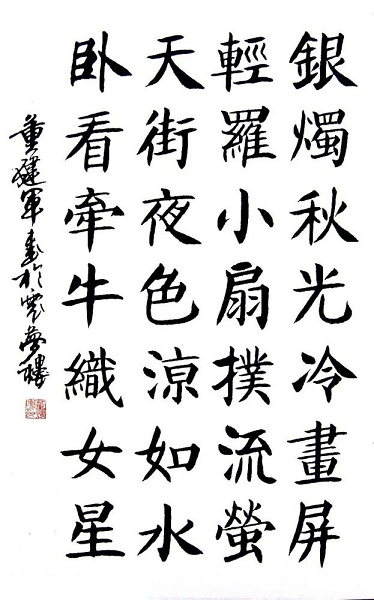 銀燭秋光冷畫屏
輕羅小扇撲流螢
天街夜色涼如水
卧看牽牛織女星
董建軍書於夢樓